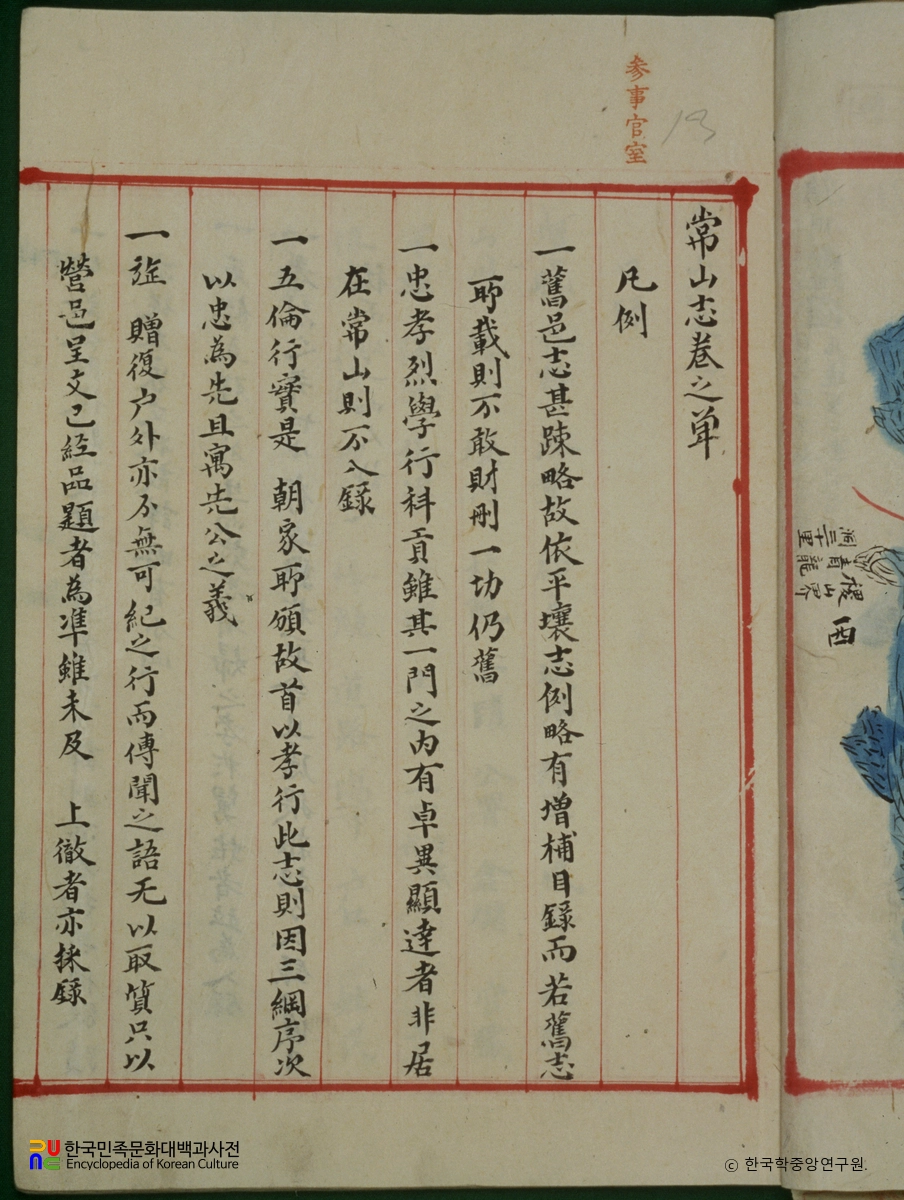 參事官室
13
常山志卷之单
凡例
一舊邑志甚踈略故依平壤志例略有增補目錄而若舊志
所載則不敢財刪一切仍舊
一忠孝烈學行科貢雖其一門之內有卓異顯達者非居
在常山則不入錄
一五倫行實是 朝家所頒故首以孝行此志則因三綱序次
以忠為先且寓先公之義
一旌 贈復户外亦不無可紀之行而傳聞之語无以取質只以
營邑呈文已経品題者為準雖未及 上徹者亦採錄
西
한국민족문화대백과사전
Encyclopedia of Korean Culture
© 한국학중앙연구원.